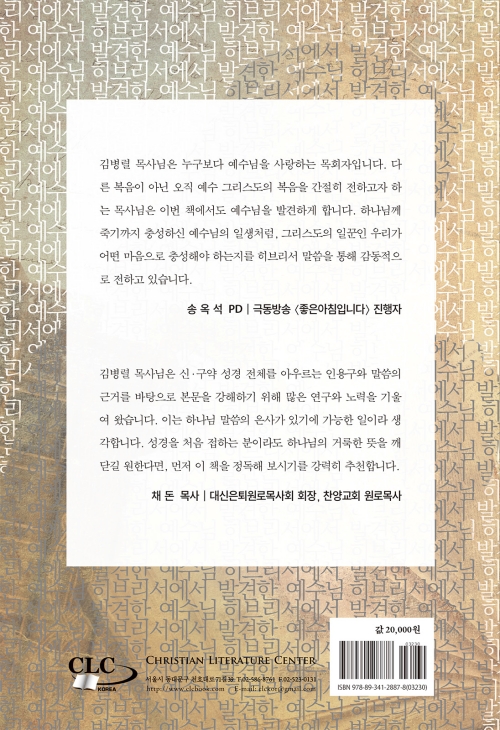 김병렬 목사님은 누구보다 예수님을 사랑하는 목회자입니다. 다
른 복음이 아닌 오직 예수 그리스도의 복음을 간절히 전하고자 하
는 목사님은 이번 책에서도 예수님을 발견하게 합니다. 하나님께
죽기까지 충성하신 예수님의 일생처럼, 그리스도의 일꾼인 우리가
어떤 마음으로 충성해야 하는지를 히브리서 말씀을 통해 감동적으
로 전하고 있습니다.
송 옥 석 PD | 극동방송 〈좋은아침입니다〉 진행자
김병렬 목사님은 신·구약 성경 전체를 아우르는 인용구와 말씀의
근거를 바탕으로 본문을 강해하기 위해 많은 연구와 노력을 기울
여 왔습니다. 이는 하나님 말씀의 은사가 있기에 가능한 일이라 생
각합니다. 성경을 처음 접하는 분이라도 하나님의 거룩한 뜻을 깨
닫길 원한다면, 먼저 이 책을 정독해 보시기를 강력히 추천합니다.
채 돈 목사 | 대신은퇴원로목사회 회장, 찬양교회 원로목사
값 20,000원
03230
ISBN 978-89-341-2887-8(03230)
CLC
KOREA
CHRISTIAN LITERATURE CENTER
서울시 동대문구 천호대로71길 T.02-586-8761 F.02-523-0131
http://www.clcbook.com E-mail: clckor@gmail.com
히브리서에서 발견한 예수님